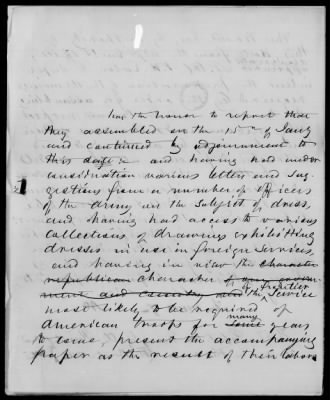 has the honor to report that
they assembled on the 15th of Jany
and continued by adjournment to
this date & and having had under
consideration various letters and sug-
gestions from a number of officers
of the army on the subject of dress,
and having had access to various
collections of drawing exhibiting
dresses in use in foreign services
and having in view the character
republican character of our govern-
of frontier
ment and country and the service
most likely to be required of
many
American troops for some years
to come, present the accompanying
paper as the result of their labors